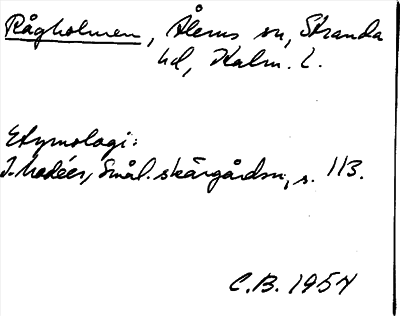 Rågholmen, Ålems sn, Stranda
hd, Kalm. l.
Etymologi:
J. Modéer, Smål. skärgårdsn, s. 113.
C.B. 1954